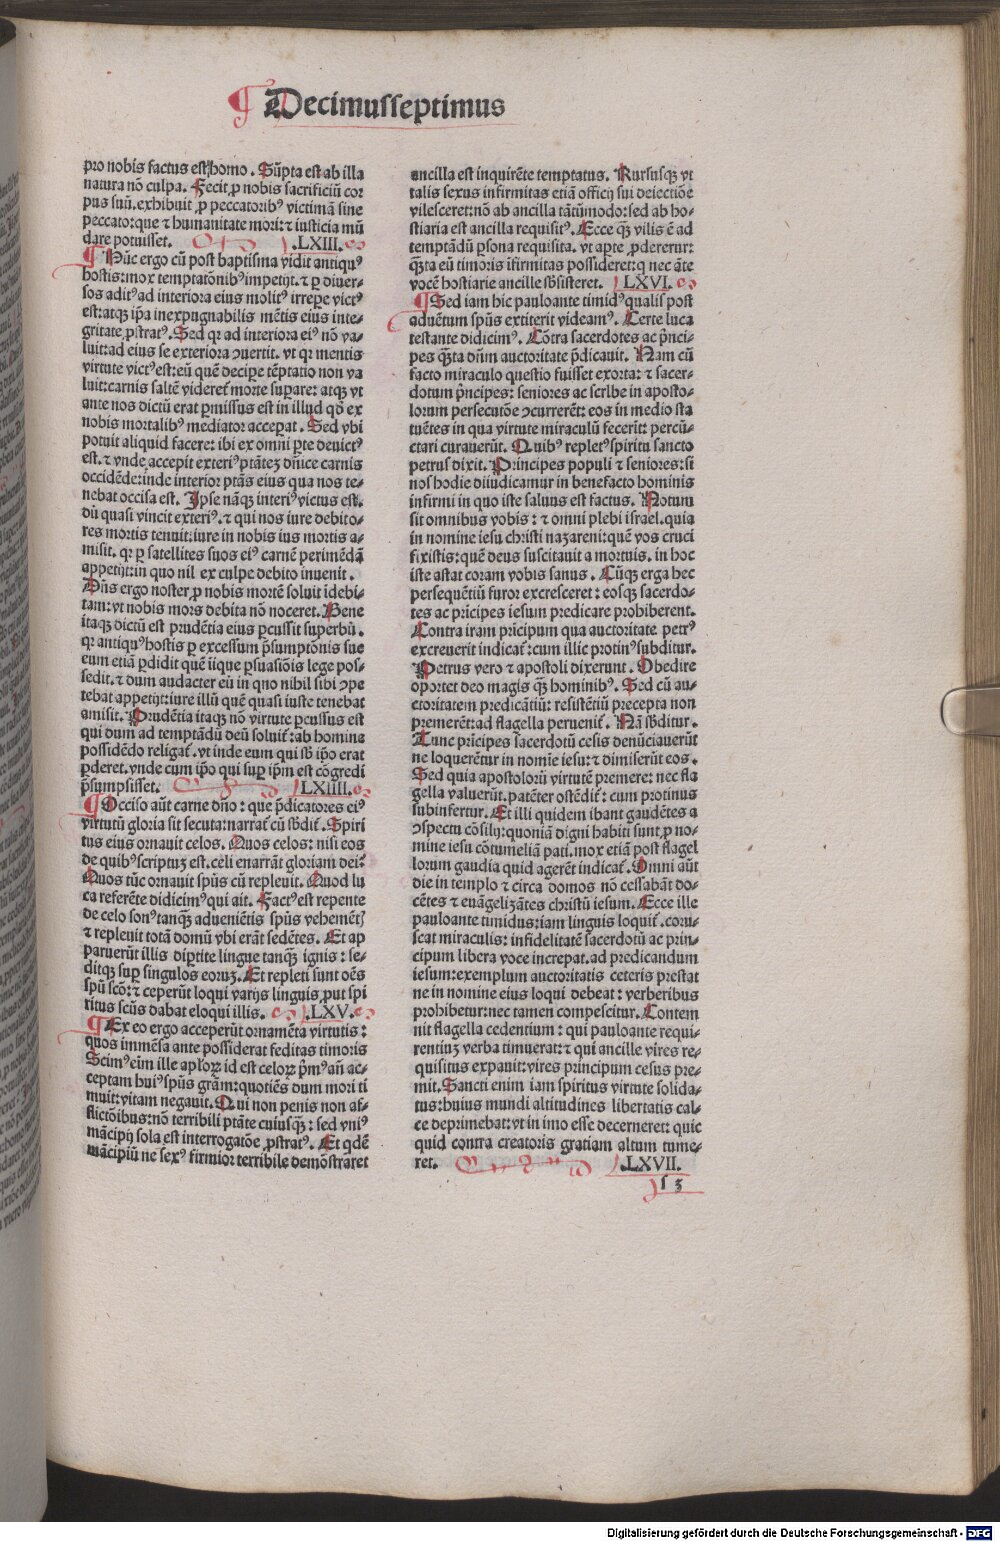 ¶ Decimusseptimus
pro nobis factus est homo. Sūpta est ab illa
natura nō culpa. Fecit ꝓ nobis sacrificiū cor
pus suū. exhibuit ꝓ peccatoribꝰ victimā sine
peccato: que ⁊ humanitate mori: ⁊ iusticia mū
dare potuisset. .LXIII.
¶ Hūc ergo cū post baptisma vidit antiquꝰ
hostis: mox temptatōnibꝰ impetijt. ⁊ ꝑ diuer-
sos aditꝰ ad interiora eius molitꝰ irrepe victꝰ
est: atqꝫ ip̄a inexpugnabilis mētis eius inte-
gritate ꝓstratꝰ. Sed qꝛ ad interiora eiꝰ nō va-
luit: ad eius se exteriora ↄuertit. vt qꝛ mentis
virtute victꝰ est: eū quē decipe tēptatio non va
luit: carnis saltē videret᷑ morte suꝑare: atqꝫ vt
ante nos dictū erat ꝑmissus est in illud qd̄ ex
nobis mortalibꝰ mediator acceꝑat. Sed vbi
potuit aliquid facere: ibi ex omni ꝑte deuictꝰ
est. ⁊ vnde accepit exteriꝰ ptātēz dn̄ice carnis
occidēde: inde interior ptās eius qua nos te-
nebat occisa est. Ipse nāqꝫ interiꝰ victus est.
dū quasi vincit exteriꝰ. ⁊ qui nos iure debito-
res mortis tenuit: iure in nobis ius mortis a-
misit. qꝛ ꝑ satellites suos eiꝰ carnē perimēdā
appetijt: in quo nil ex culpe debito inuenit.
Dn̄s ergo noster ꝓ nobis mortē soluit īdebi-
tam: vt nobis mors debita nō noceret. Bene
itaqꝫ dictū est prudētia eius ꝑcussit superbū.
qꝛ antiquꝰ hostis ꝑ excessum p̄sumptōnis sue
eum etiā ꝑdidit quē iique ꝑsuasiōis lege pos-
sedit. ⁊ dum audacter eū in quo nihil sibi ↄpe
tebat appetijt: iure illū quē quasi iuste tenebat
amisit. Prudētia itaqꝫ nō virtute ꝑcussus est
qui dum ad temptādū deū soluit᷑: ab homine
possidēdo religat᷑. vt inde eum qui sb̄ ip̄o erat
ꝑderet. vnde cum ip̄o qui suꝑ ip̄m est cōgredi
p̄sumpsisset. .LXIIII.
¶ Occiso aūt carne dn̄o: que p̄dicatores eiꝰ
virtutū gloria sit secuta: narrat᷑ cū sb̄dit᷑. Spiri
tus eius ornauit celos. Quos celos: nisi eos
de quibꝰ scriptuꝫ est. celi enarrāt gloriam dei?
Quos tūc ornauit spūs cū repleuit. Quod lu
ca referēte didicimꝰ qui ait. Factꝰ est repente
de celo sonꝰ tanqꝫ̄ aduenīētis spūs vehemēt᷑
⁊ repleuit totā domū vbi erāt sedētes. Et ap
paruerūt illis diꝑtite lingue tanqꝫ̄ ignis: se-
ditqꝫ suꝑ singulos eoruꝫ. Et repleti sunt oēs
spū scō: ⁊ ceperūt loqui varijs linguis ꝓut spi
ritus scūs dabat eloqui illis. .LXV.
¶ Ex eo ergo acceperūt ornamēta virtutis:
quos immēsa ante possiderat feditas timoris
Scimꝰ eīm ille apl̄oꝝ id est celoꝝ p̄mꝰ añ ac-
ceptam huiꝰ spūs grām: quotiēs dum mori ti
muit: vitam negauit. Qui non penis non af-
flictōibus: nō terribili ptāte cuiusqꝫ̄: sed vniꝰ
mācipij sola est interrogatōe ꝓstratꝰ. Et qdē
mācipiū ne sexꝰ firmior terribile demōstraret
ancilla est inquirēte temptatus. Rursusqꝫ vt
talis sexus infirmitas etiā officij sui deiectiōe
vilesceret: nō ab ancilla tātūmodo: sed ab ho-
stiaria est ancilla requisitꝰ. Ecce qꝫ̄ vilis ē ad
temptādū ꝑsona requisita. vt aperte ꝓdereret᷑:
qꝫ̄ta eū timoris īfirmitas possideret: q nec āte
vocē hostiarie ancille sb̄sisteret. .LXVI.
¶ Sed iam hic pauloante timidꝰ qualis post
aduētum spūs extiterit videamꝰ. Certe luca
testante didicimꝰ. Cōtra sacerdotes ac p̄nci-
pes qꝫ̄ta dn̄m auctoritate p̄dicauit. Nam cū
facto miraculo questio fuisset exorta: ⁊ sacer-
dotum p̄ncipes: seniores ac scribe in aposto-
lorum persecutōe ↄcurrerēt: eos in medio sta
tuētes in qua virtute miraculū fecerit: percū-
ctari curauerūt. Quibꝰ repletꝰ spiritu sancto
petrus dixit. Principes populi ⁊ seniores: si
nos hodie diiudicamur in benefacto hominis
infirmi in quo iste saluus est factus. Notum
sit omnibus vobis: ⁊ omni plebi israel. quia
in nomine iesu christi nazareni: quē vos cruci
fixistis: quē deus suscitauit a mortuis. in hoc
iste astat coram vobis sanus. Cūqꝫ erga hec
persequētiū furor excresceret: eosqꝫ sacerdo-
tes ac prīcipes iesum predicare prohiberent.
Contra iram prīcipum qua auctoritate petrꝰ
excreuerit indicat᷑: cum illic protinꝰ subditur.
Petrus vero ⁊ apostoli dixerunt. Obedire
oportet deo magis qꝫ̄ hominibꝰ. Sed cū au-
ctoritatem predicātiū: resistētiū precepta non
premerēt: ad flagella peruenit᷑. Nā sb̄ditur.
Tunc prīcipes sacerdotū cesis denūciauerūt
ne loquerētur in nomie iesu: ⁊ dimiserūt eos.
Sed quia apostolorū virtutē premere: nec fla
gella valuerūt. patēter ostēdit᷑: cum protinus
subinfertur. Et illi quidem ibant gaudētes a
ↄspectu cōsilij: quoniā digni habiti sunt. ꝓ no-
mine iesu cōtumeliā pati. mox etiā post flagel
lorum gaudia quid agerēt indicat᷑. Omni aūt
die in templo ⁊ circa domos nō cessabāt do-
cētes ⁊ euāgelizātes christū iesum. Ecce ille
pauloante timidus: iam linguis loquit᷑. coru-
scat miraculis: infidelitatē sacerdotū ac prin-
cipum libera voce increpat. ad predicandum
iesum: exemplum auctoritatis ceteris prestat
ne in nomine eius loqui debeat: verberibus
prohibetur: nec tamen compescitur. Contem
nit flagella cedentium: qui pauloante requi-
rentiuꝫ verba timuerat: ⁊ qui ancille vires re-
quisitus expauit: vires principum cesus pre-
mit. Sancti enim iam spiritus virtute solida-
tus: huius mundi altitudines libertatis cal-
ce deprimebat: vt in imo esse decerneret: quic
quid contra creatoris gratiam altum tume-
ret. .LXVII.
s 3
Digitalisierung gefördert durch die Deutsche Forschungsgemeinschaft - DFG